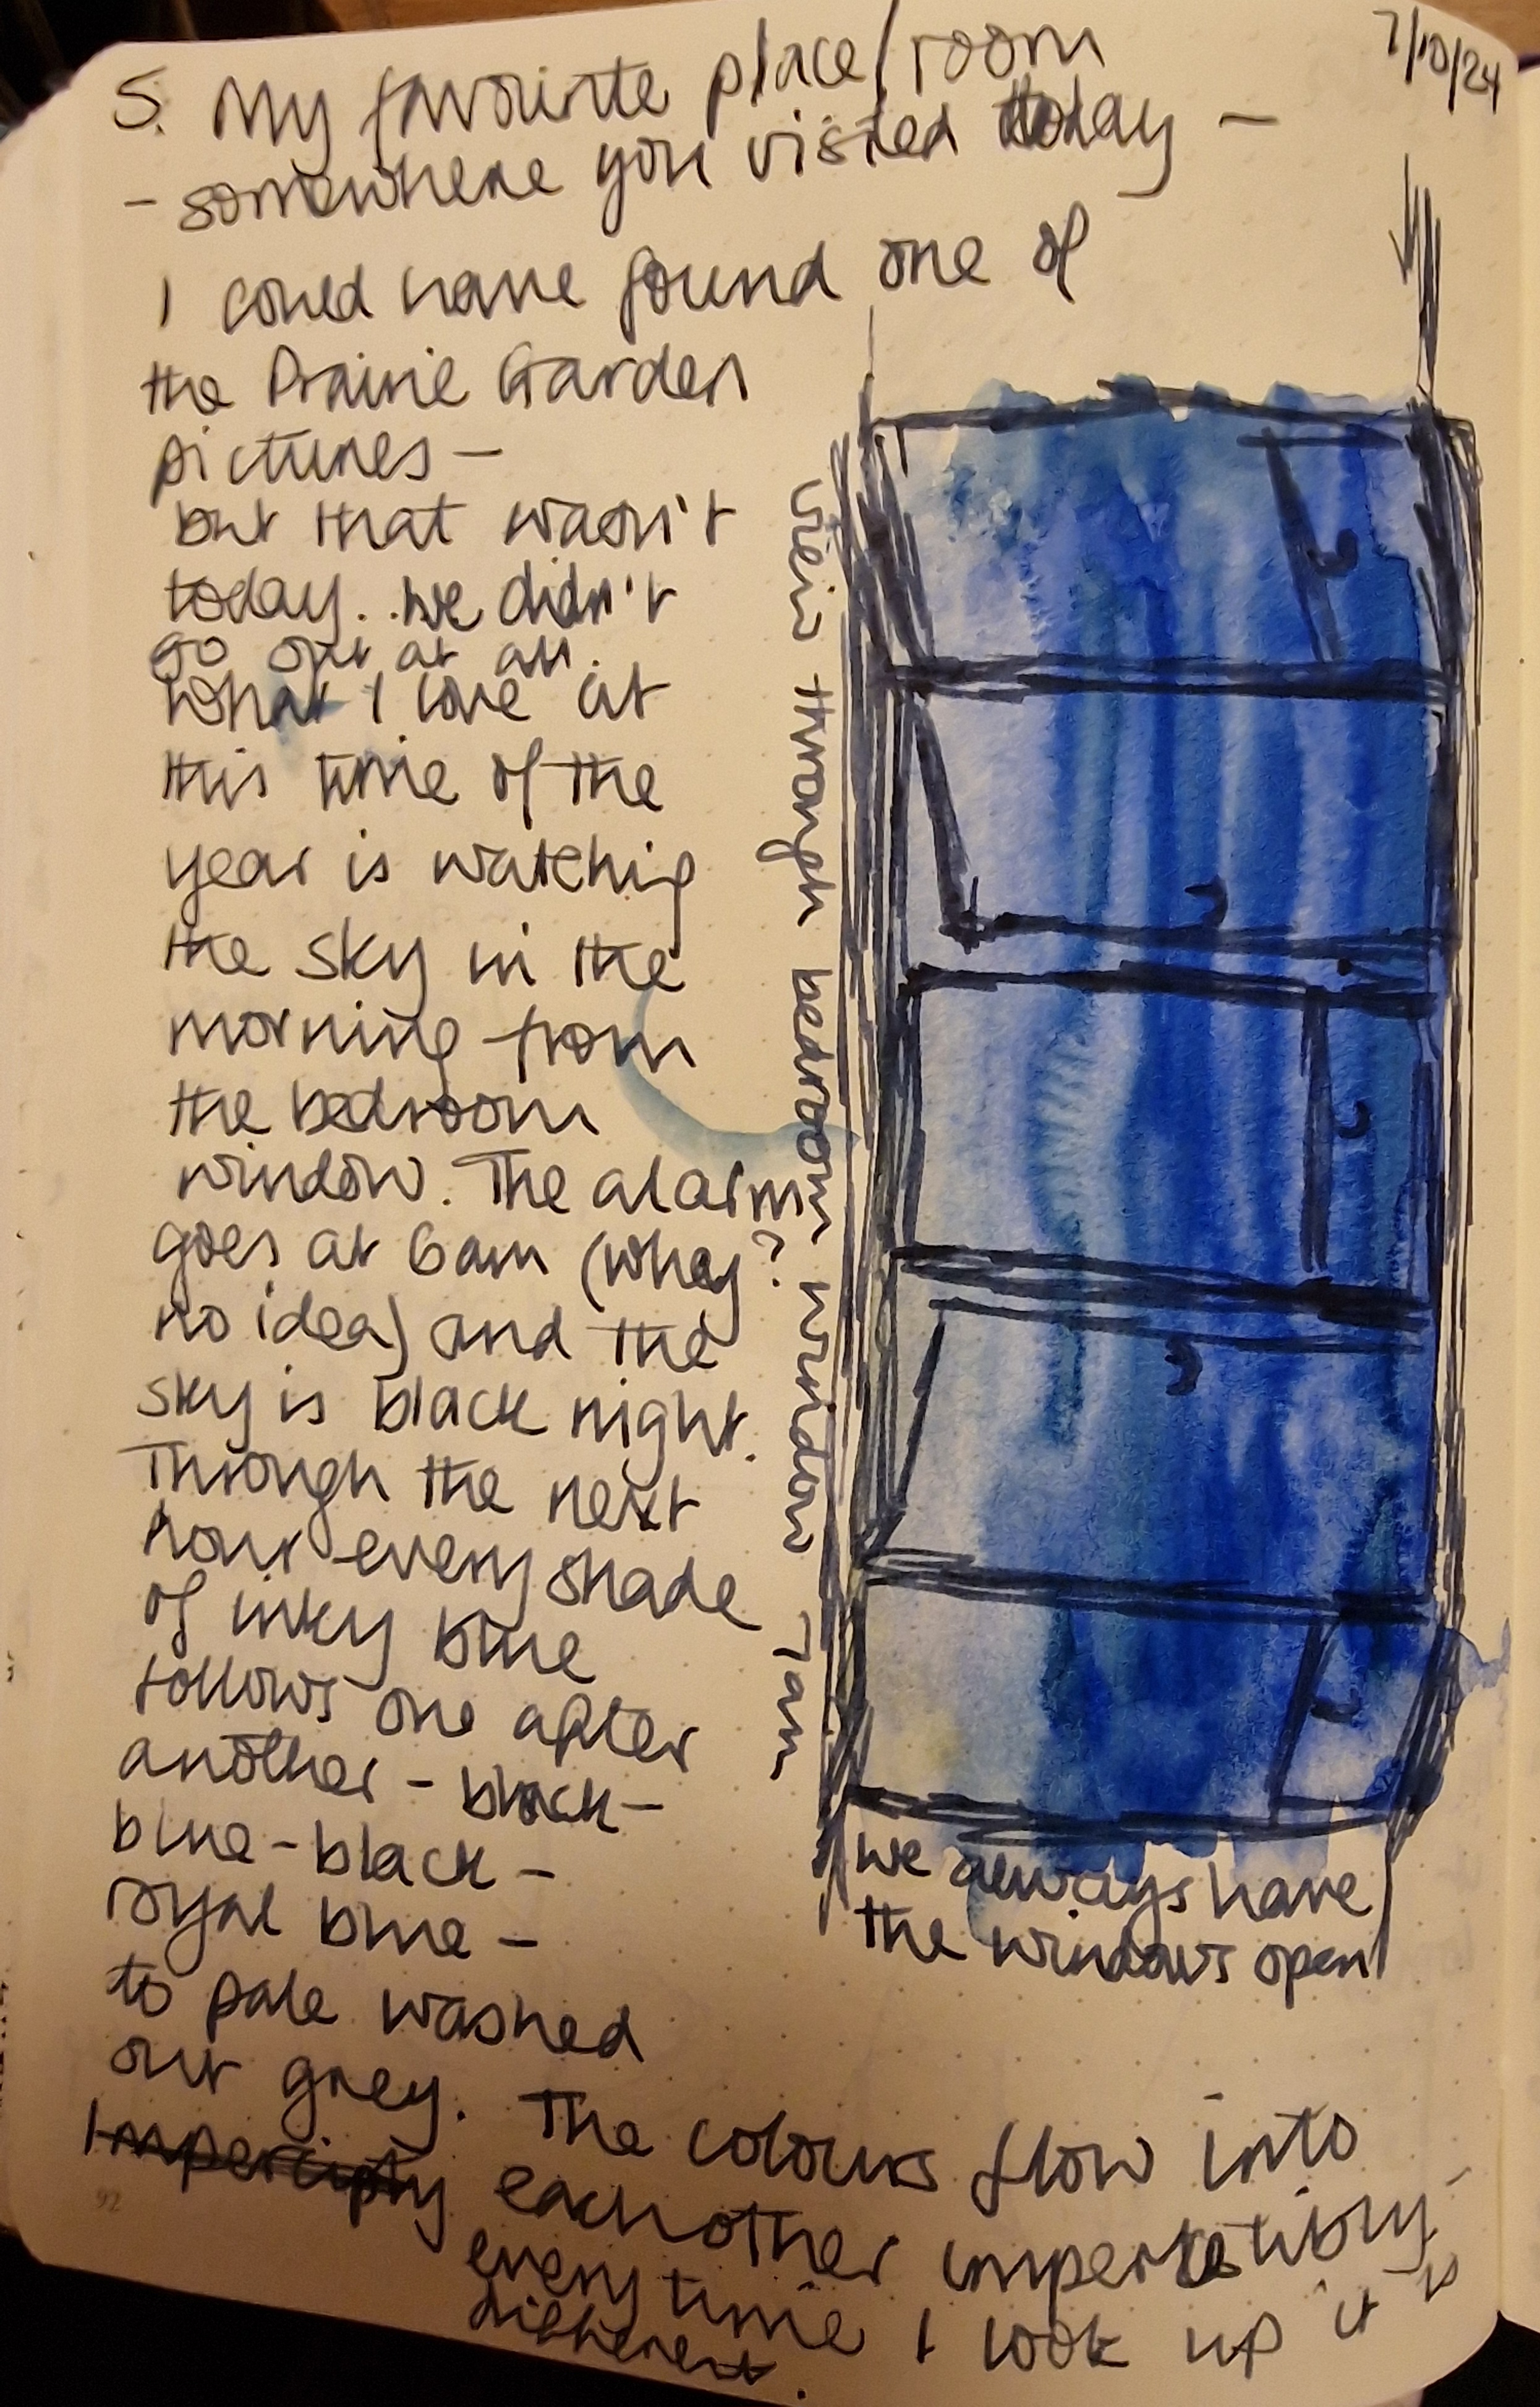 7/10/24
5. My favourite place/room
- somewhere you visited today -
I could have found one of
the Prairie Garden
pictures -
but that wasn't
today. we didn't
go out at all.
What I love at
this time of the
year is watching
the sky in the
morning from
the bedroom
window. The alarm
goes at 6am (why?
no idea) and the
sky is black night.
Through the next
hour every shade
of inky blue
follows one after
another - black -
blue - black -
royal blue -
to pale washed
out grey. The colours flow into
each other imperceptibly -
every time I look up it is
different.
view through bedroom window 7am
we always have
the windows open
92